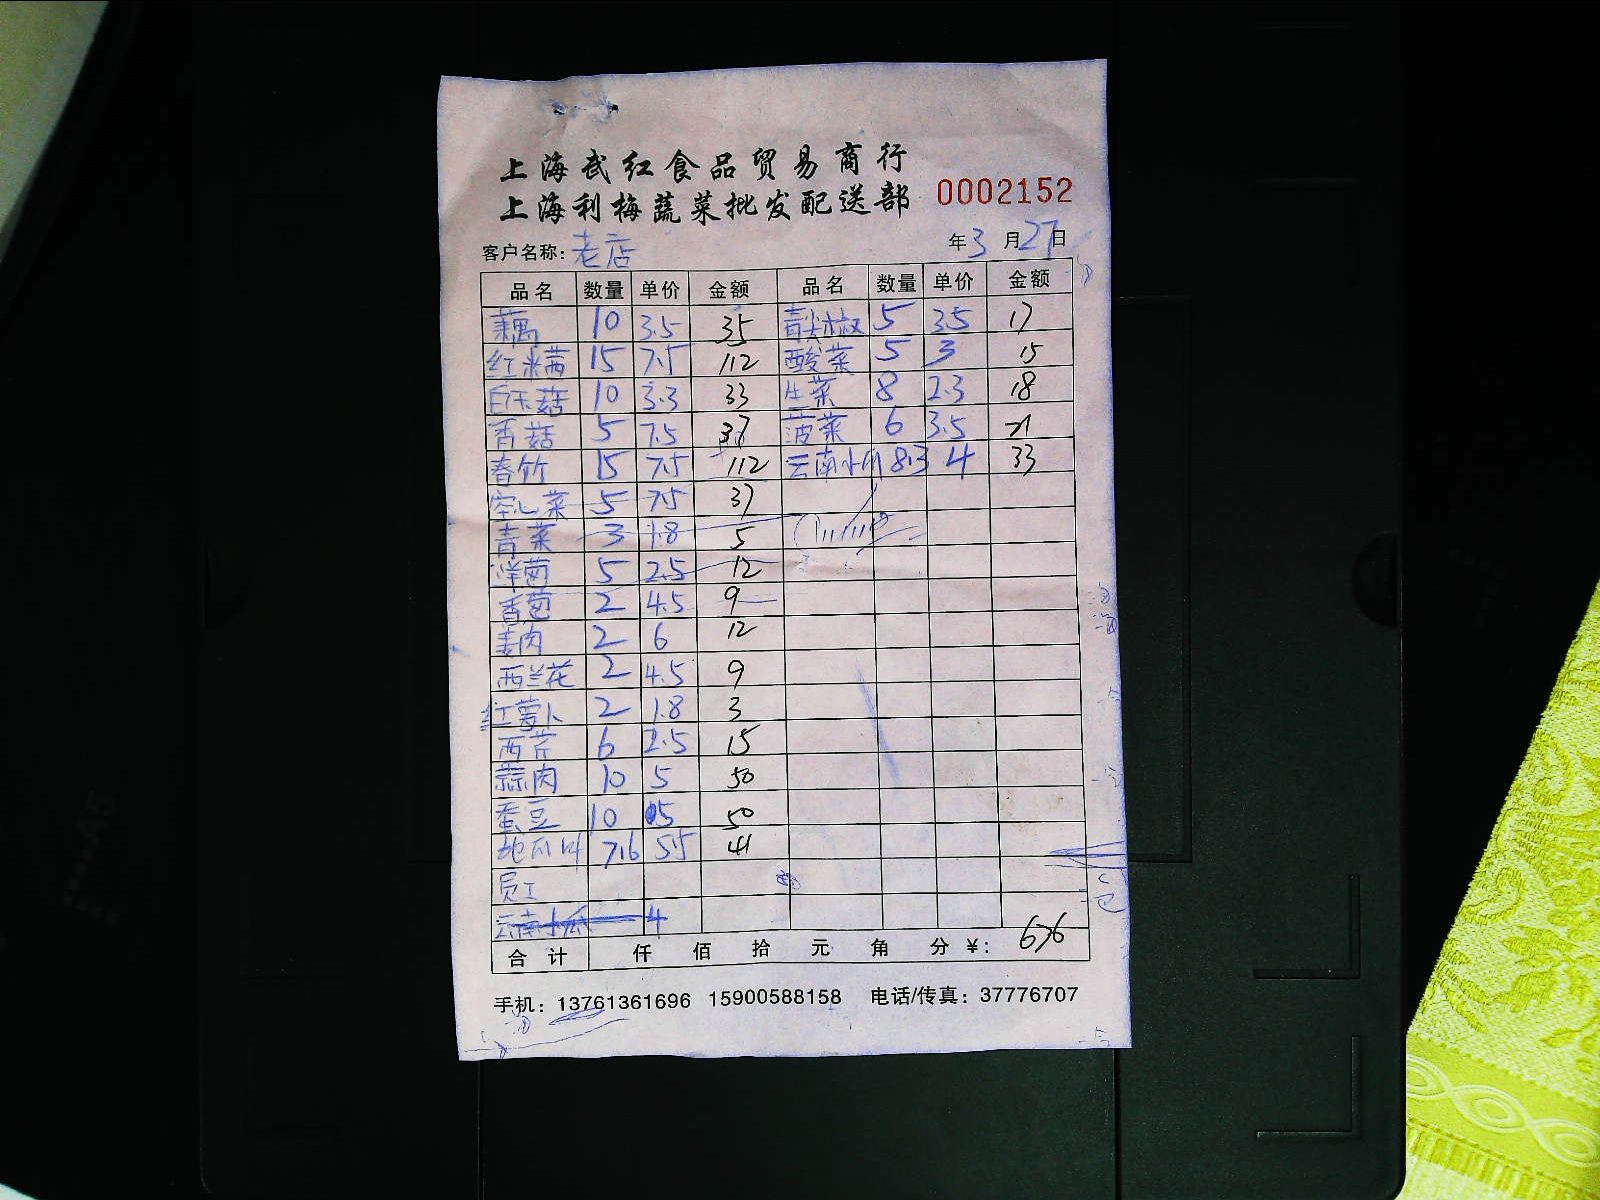 上海武红食品贸易商行
上海利梅蔬菜批发配送部 0002152
客户名称：老店 年3月27日
品名 数量 单价 金额 品名 数量 单价 金额
藕 10 3.5 35 青尖椒 5 3.5 17
红米苋 15 7.5 112 酸菜 5 3 15
白玉菇 10 3.3 33 生菜 8 2.3 18
香菇 5 7.5 37 菠菜 6 3.5 21
春竹 15 7.5 112 云南小瓜 8.3 4 33
空心菜 5 7.5 37
青菜 3 1.8 5
洋葱 5 2.5 12
香葱 2 4.5 9
姜肉 2 6 12
西兰花 2 4.5 9
红萝卜 2 1.8 3
西芹 6 2.5 15
蒜肉 10 5 50
蚕豆 10 5 50
地瓜叶 7.6 5.5 41
员工
云南小瓜 4
合计 仟 佰 拾 元 角 分 ￥：676
手机：13761361696 15900588158 电话/传真：37776707